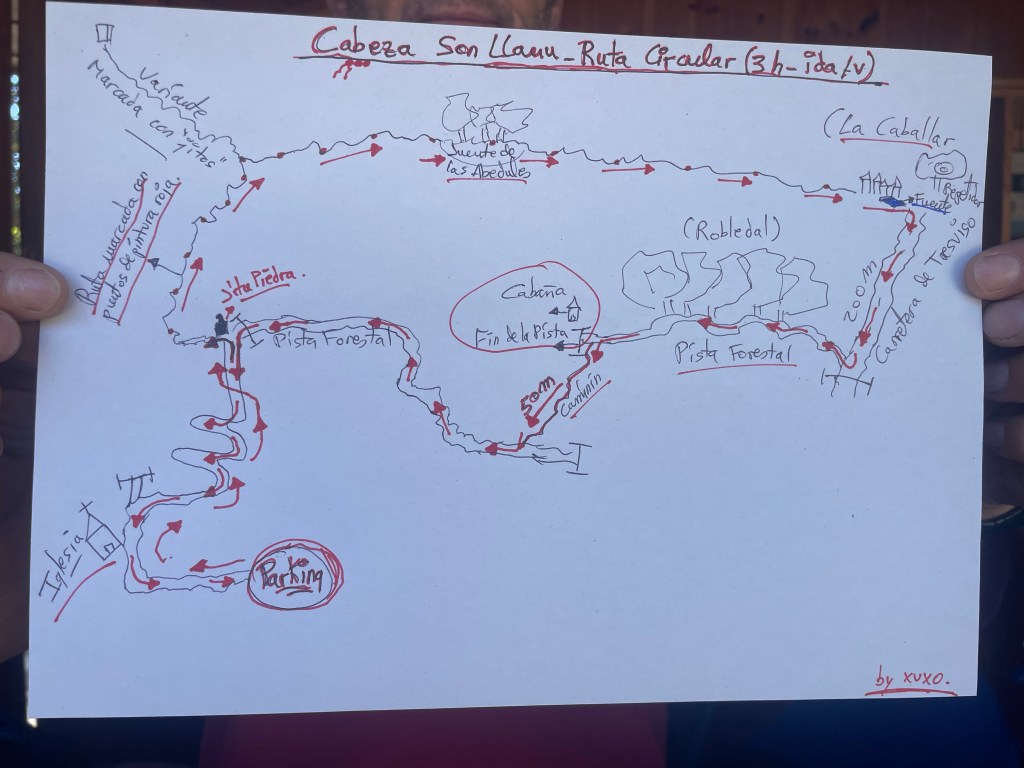 Cabeza Son Llanu - Ruta Circular (3h - ida/v)
Variante
Marcada con "jitos"
Ruta marcada con
puntos de pintura roja.
Fuente de
las Abedules
(La Caballar
Repetidor
Fuente
200m
Carretera de Tresviso
(Robledal)
Pista Forestal
Cabaña
Fin de la Pista
50m
Caminín
Pista Forestal
Jitu Piedra.
Iglesia
Parking
by xuxo.